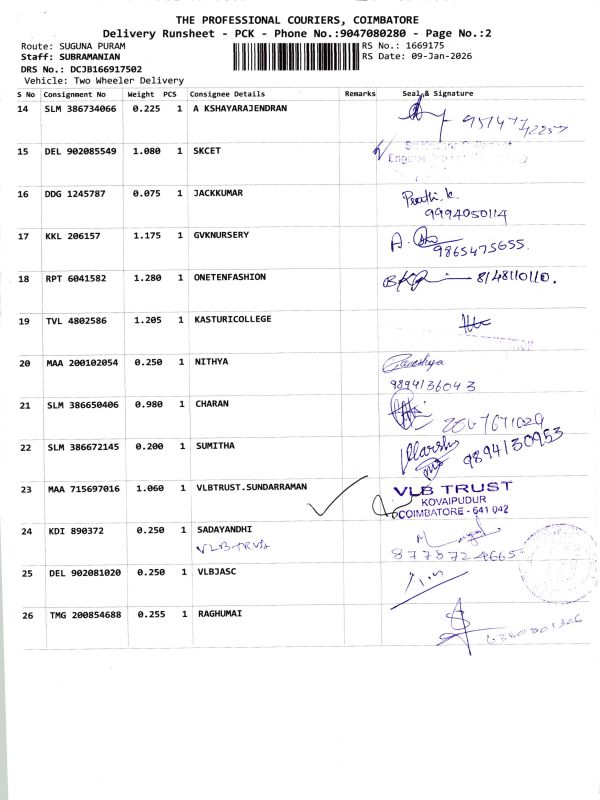 THE PROFESSIONAL COURIERS, COIMBATORE
Delivery Runsheet - PCK - Phone No.:9047080280 - Page No.:2
Route: SUGUNA PURAM RS No.: 1669175
Staff: SUBRAMANIAN RS Date: 09-Jan-2026
DRS No.: DCJB166917502
Vehicle: Two Wheeler Delivery
S No Consignment No Weight PCS Consignee Details Remarks Seal & Signature
14 SLM 386734066 0.225 1 A KSHAYARAJENDRAN
15 DEL 902085549 1.080 1 SKCET
16 DDG 1245787 0.075 1 JACKKUMAR
9994050114
17 KKL 206157 1.175 1 GVKNURSERY
9865475655.
18 RPT 6041582 1.280 1 ONETENFASHION 8148110110.
19 TVL 4802586 1.205 1 KASTURICOLLEGE
20 MAA 200102054 0.250 1 NITHYA
9894136043
21 SLM 386650406 0.980 1 CHARAN
22 SLM 386672145 0.200 1 SUMITHA 9894130953
23 MAA 715697016 1.060 1 VLBTRUST.SUNDARRAMAN VLB TRUST
KOVAIPUDUR
COIMBATORE - 641 042
24 KDI 890372 0.250 1 SADAYANDHI
VLB TRUST 8778724665
25 DEL 902081020 0.250 1 VLBJASC
26 TMG 200854688 0.255 1 RAGHUMAI